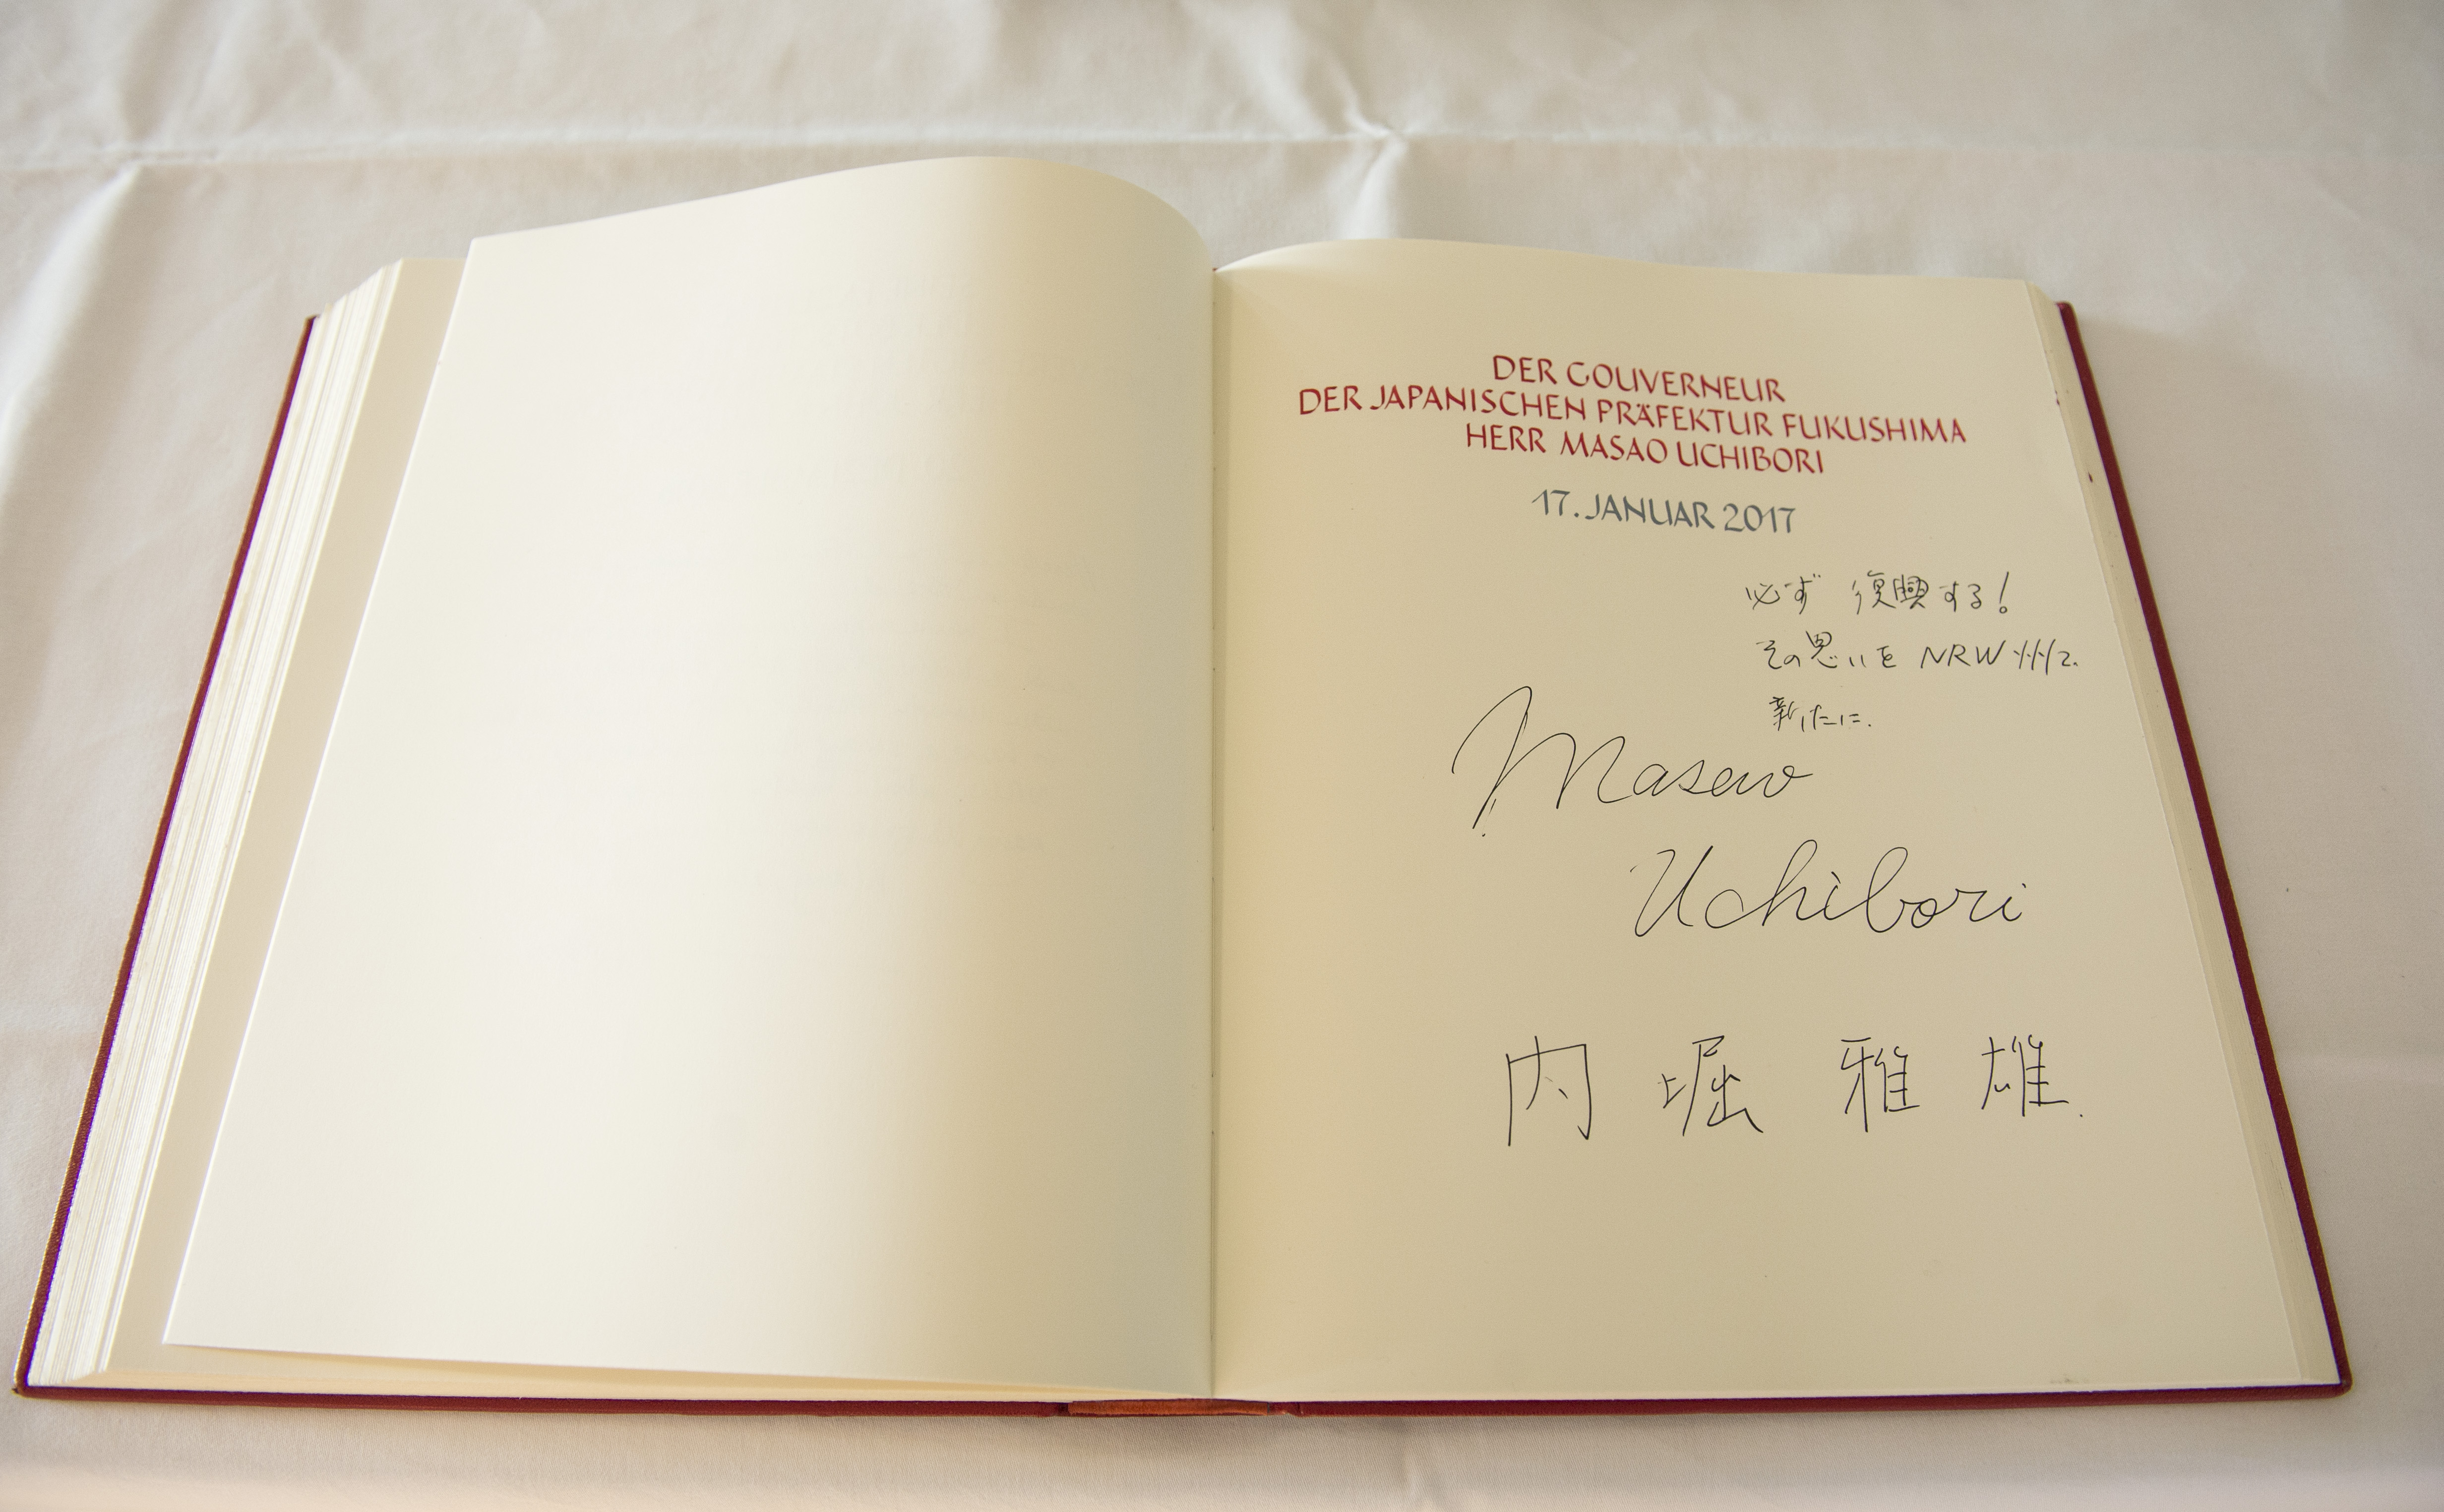 DER GOUVERNEUR
DER JAPANISCHEN PRÄFEKTUR FUKUSHIMA
HERR MASAO UCHIBORI
17. JANUAR 2017
必ず 復興する!
その思いを NRW州で、
新たに.
Masao
Uchibori
内 堀 雅 雄.